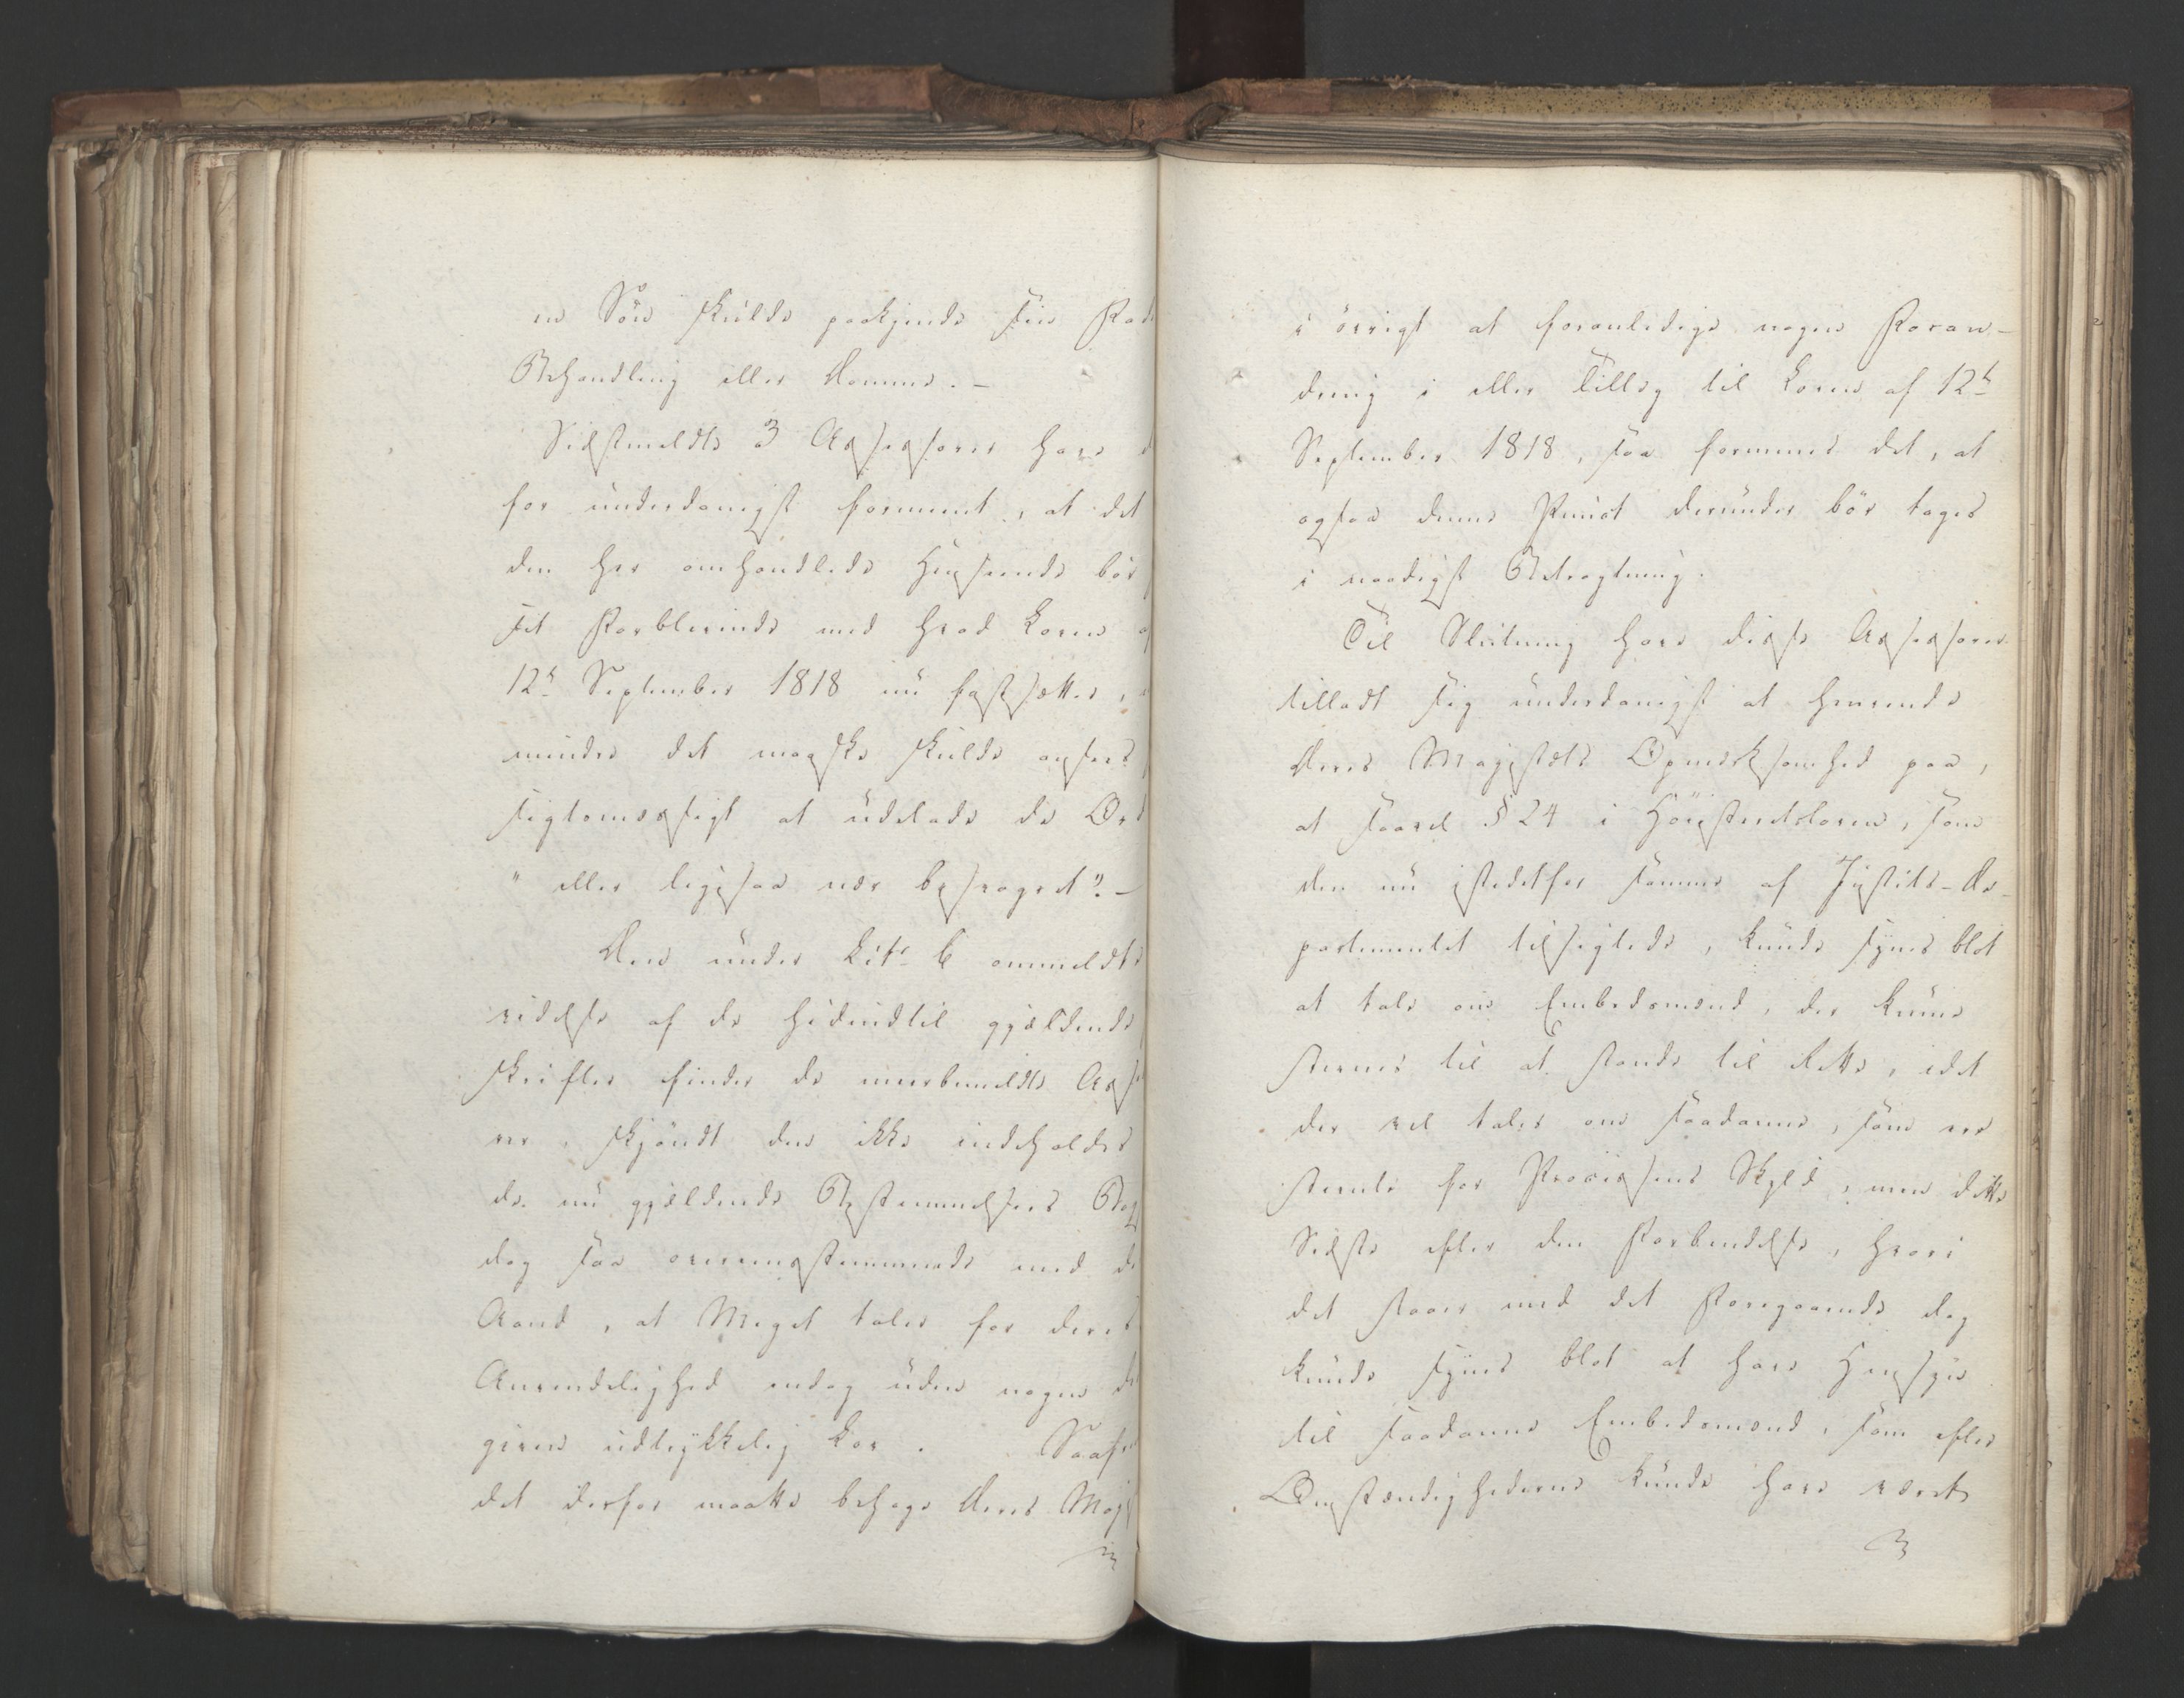 en Søn skulde paakjende sin Fad
Behandling eller Domme. –
Sidstmeldte 3 Assessorer have d
for underdanigst formeent, at det
den her omhandlede Henseende bør
sit Forblivende med hvad Loven a
12te September 1818 nu fastsætter,
mindre det maaske skulde ansees
sigtsmæssigt at udelade de Ord
"eller ligesaa nær besvogret". –
Den under Litr b ommeldte
videlse af de hidindtil gjældende
skrifter finder de meerbemeldte Ass
rer, skjöndt den ikke indeholdes
de nu gjældende Bestemmelsers Bog
dog saa overeensstemmende med de
Aand, at Meget taler for deres
Anvendelighed endog uden nogen de
given udtrykkelig Lov. Saafre
det derfor maatte behage Deres Maj
i övrigt at foranledige nogen Foran-
dring i eller Tillæg til Loven af 12te
September 1818, saa formenes det, at
ogsaa denne Punct derunder bör tages
i naadigst Betragtning.
Til Slutning have disse Assessorer
tilladt sig underdanigst at henvende
Deres Majestæts Opmærksomhed paa,
at saavel § 24 i Höiesteretsloven, som
den nu istedetfor samme af Justits-De-
partementet tilsigtede, kunde synes blot
at tale om Embedsmænd, der kunne
stevnes til at stande til Rette, idet
der vel tales om saadanne, som ere
stevnte for Provissens Skyld, men dette
Sidste efter den Forbindelse, hvori
det staaer med det Foregaaende dog
kunde synes blot at have Hensyn
til saadanne Embedsmænd, som efter
Omstændighederne kunde have været